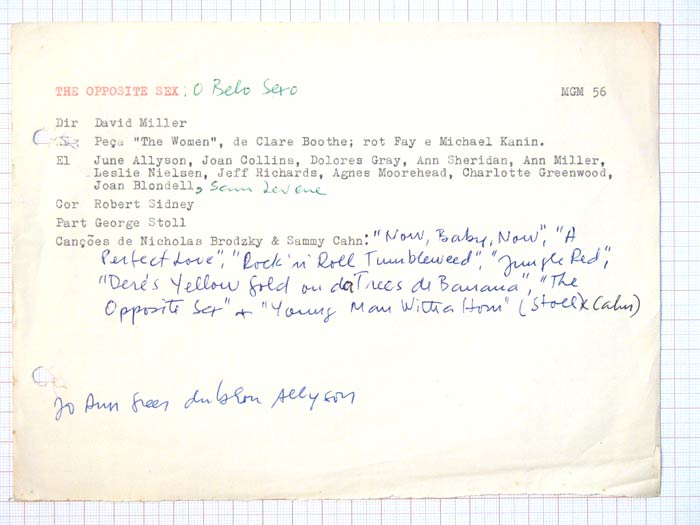 THE OPPOSITE SEX: O Belo Sexo MGM 56
Dir David Miller
Peça "The Women", de Clare Boothe; rot Fay e Michael Kanin.
El June Allyson, Joan Collins, Dolores Gray, Ann Sheridan, Ann Miller,
Leslie Nielsen, Jeff Richards, Agnes Moorehead, Charlotte Greenwood,
Joan Blondell, Sam Levene
Cor Robert Sidney
Part George Stoll
Canções de Nicholas Brodzky & Sammy Cahn: "Now, Baby, Now", "A
Perfect Love", "Rock'n' Roll Tumbleweed", "Jungle Red",
"Dere's Yellow Gold on da Trees de Banana", "The
Opposite Sex" + "Young Man With a Horn" (Stoll x Cahn)
Jo Ann Greer dublou Allyson